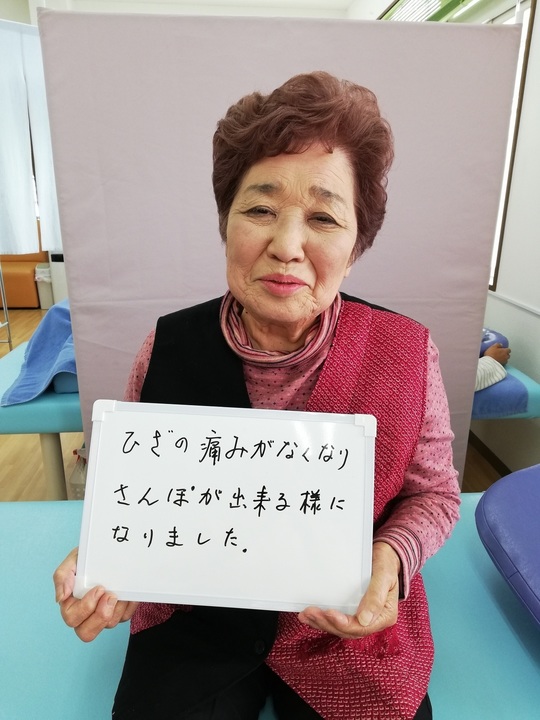 ひざの痛みがなくなり
さんぽが出来る様に
なりました。